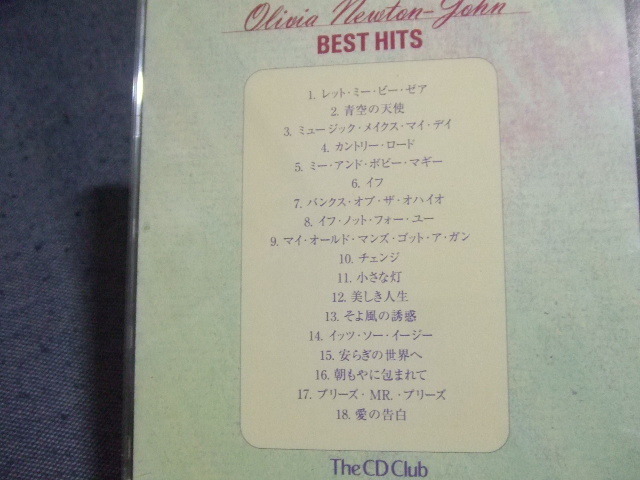 Olivia Newton-John
BEST HITS
1. レット・ミー・ビー・ゼア
2. 青空の天使
3. ミュージック・メイクス・マイ・デイ
4. カントリー・ロード
5. ミー・アンド・ボビー・マギー
6. イフ
7. バンクス・オブ・ザ・オハイオ
8. イフ・ノット・フォー・ユー
9. マイ・オールド・マンズ・ゴット・ア・ガン
10. チェンジ
11. 小さな灯
12. 美しき人生
13. そよ風の誘惑
14. イッツ・ソー・イージー
15. 安らぎの世界へ
16. 朝もやに包まれて
17. プリーズ・MR.・プリーズ
18. 愛の告白
The CD Club